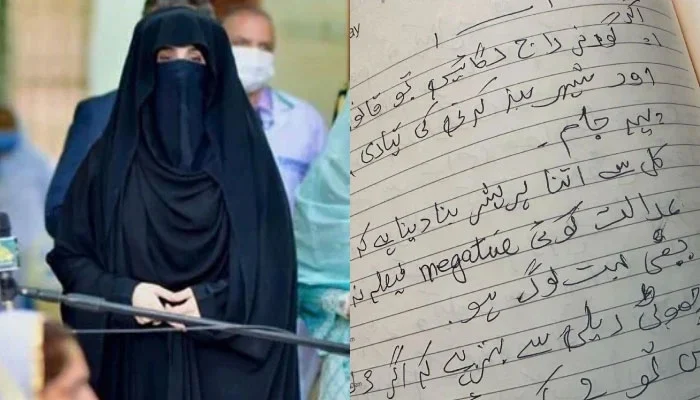 ay
اگر
گورنر راج لگائیں تو
اور شہر بند کرنے کی تیاری
پہیہ جام۔
کل سے اتنا پریشر بنا دینا ہے کہ
عدالت کوئی negative فیصلہ نہ
بھی بہت لوگ ہو۔
چھوٹی ریلی سے بہتر ہے کہ اگر
تو